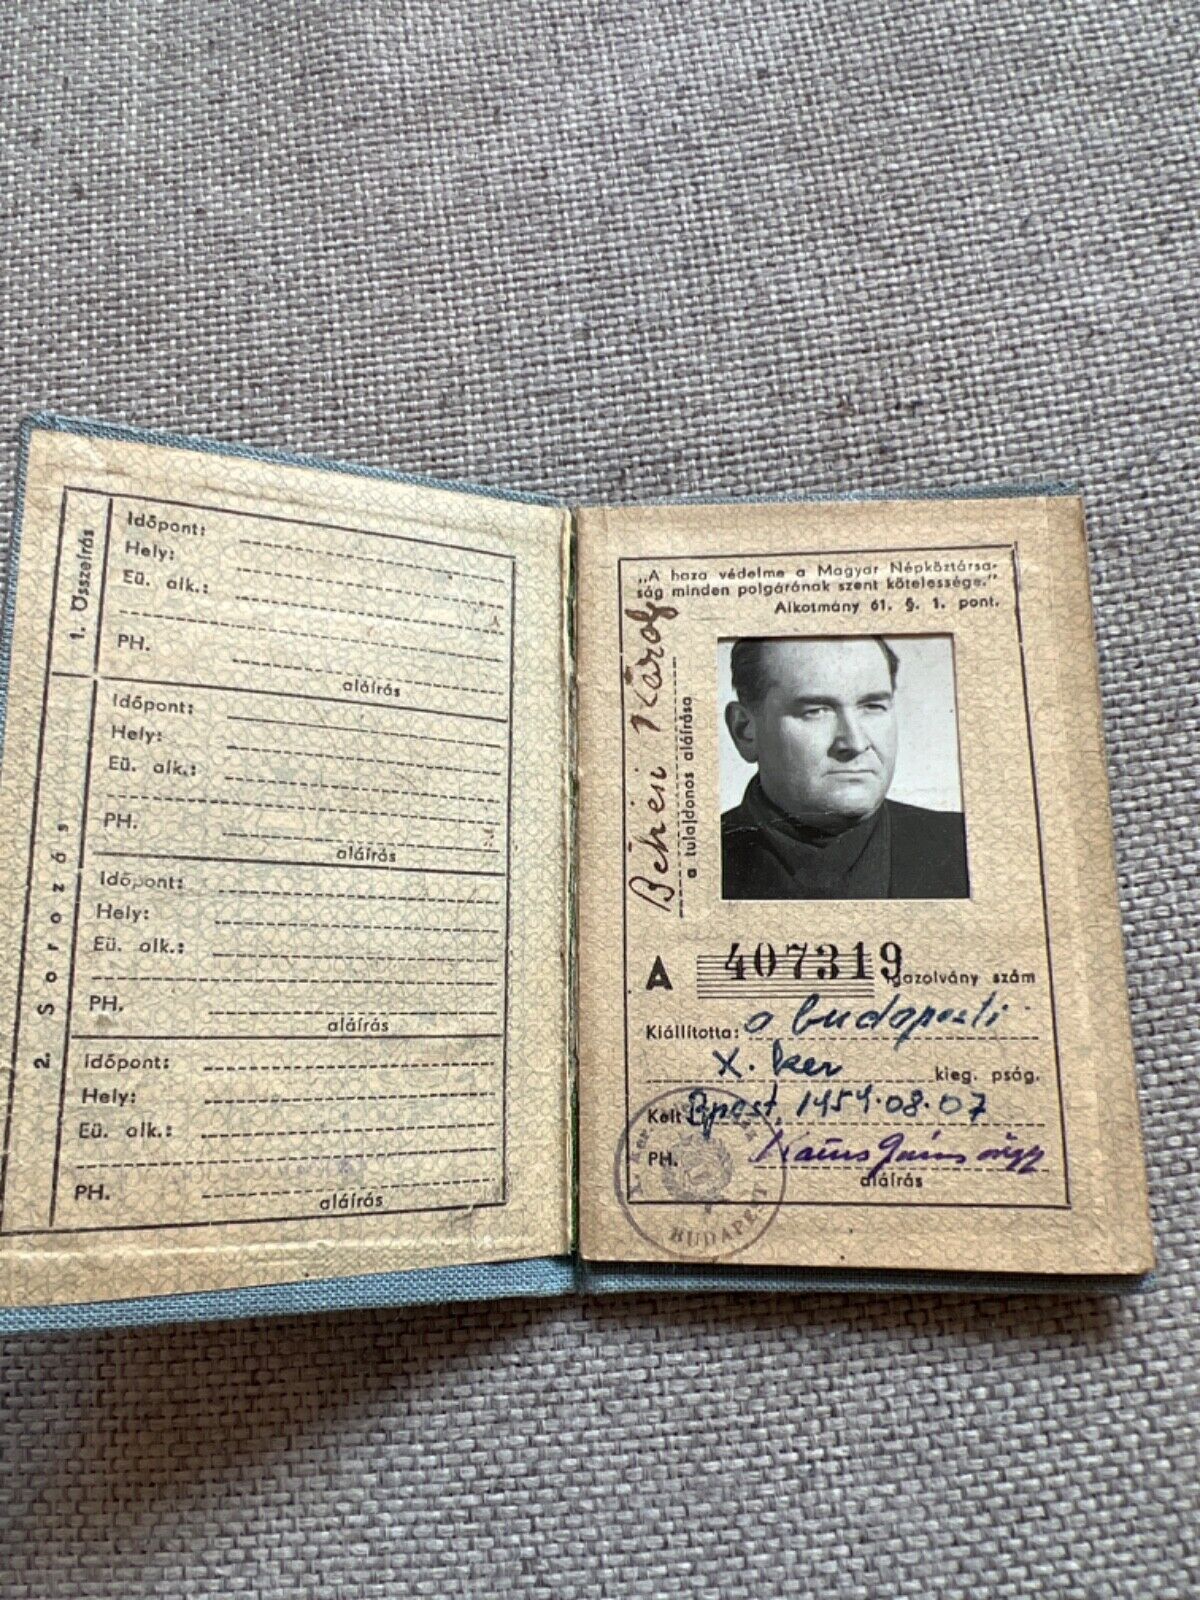 1. Összeírás
Időpont:
Hely:
Eü. alk.:
PH.
aláírás
2. Sorozás
Időpont:
Hely:
Eü. alk.:
PH.
aláírás
Időpont:
Hely:
Eü. alk.:
PH.
aláírás
Időpont:
Hely:
Eü. alk.:
PH.
aláírás
„A haza védelme a Magyar Népköztársa-
ság minden polgárának szent kötelessége.”
Alkotmány 61. §. 1. pont.
Károly
a tulajdonos aláírása
A 407319 igazolvány szám
Kiállította: a budapesti
X. ker kieg. pság.
Kelt Bpest, 1954.08.07
PH.
aláírás
BUDAPEST